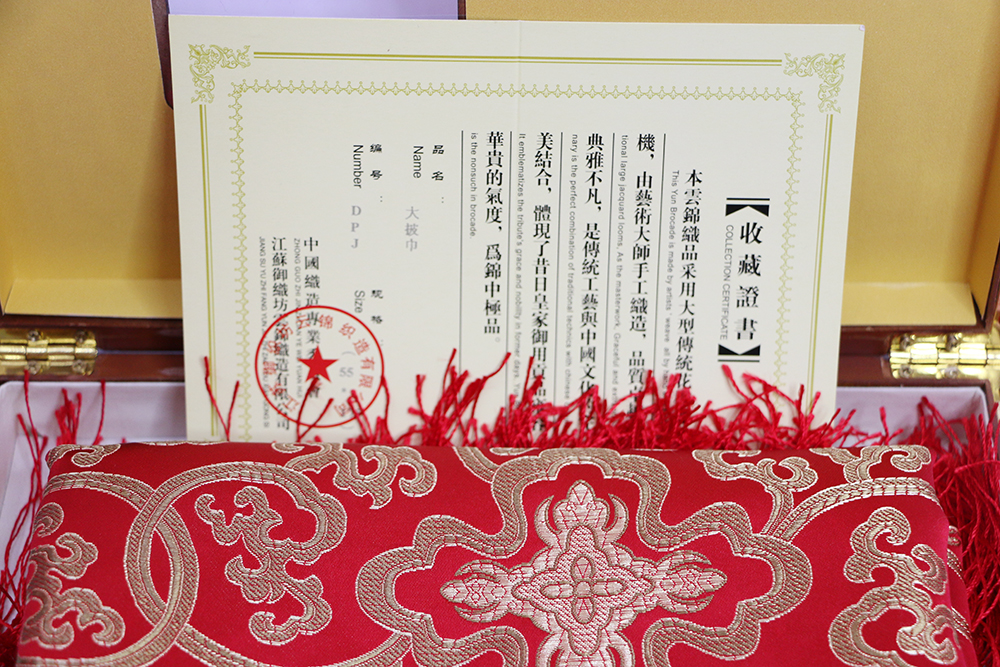 【收藏證書】
COLLECTION CERTIFICATE
本雲錦織品采用大型傳統花
This Yun Brocade is made by artists' weave all by
機，由藝術大師手工織造，品質
tional large jacquard looms, As the masterwork, Graceful and
典雅不凡，是傳統工藝與中國文化
nary is the perfect combination of traditional technics with chinese
美結合，體現了昔日皇家御用貢品
It emblematizes the tribute's grace and nobility in former days.
華貴的氣度，爲錦中極品。
is the nonsuch in brocade.
品名：大披巾
Name
編號：DPJ 規格
Number Size
中國織造專業
江蘇御織坊雲錦織造有限公司
JIANG SU YU ZHI FANG YUN
锦织造有限公司